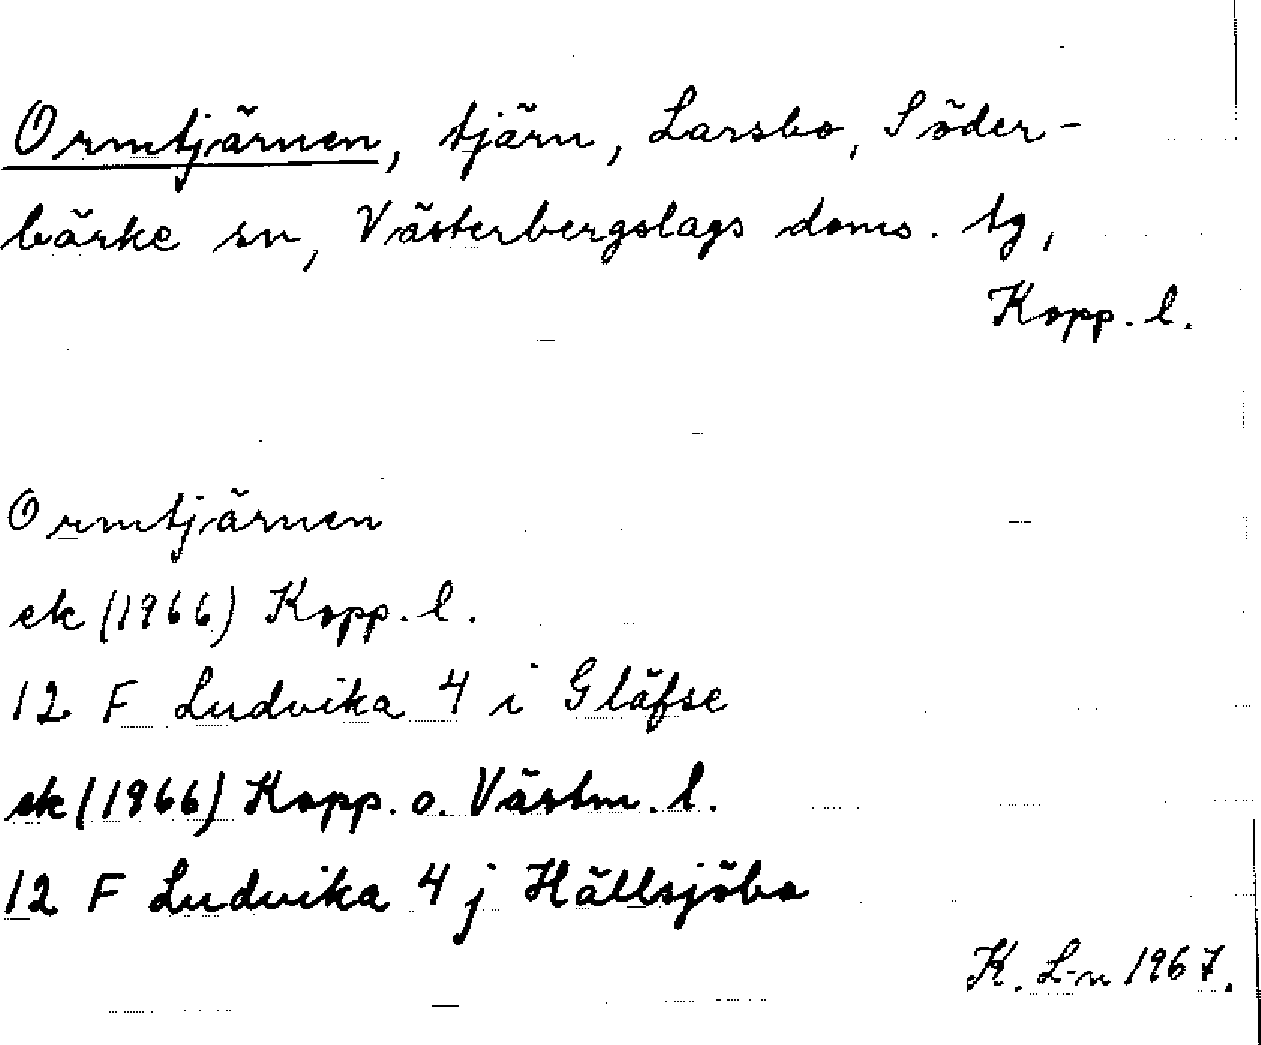 Ormtjärnen, tjärn, Larsbo, Söder-
bärke sn, Västerbergslags doms. tg,
Kopp. l.
Ormtjärnen
ek (1966) Kopp. l.
12 F Ludvika 4 i Gläfse
ek (1966) Kopp. o. Västm. l.
12 F Ludvika 4 j Hällsjöbo
K. L-n 1967.